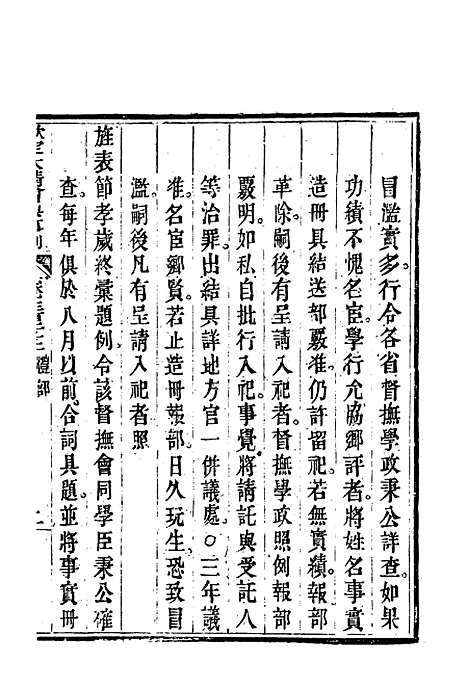 冒濫實多行令各省督撫學政秉公詳查如果
功績不愧名宦學行允協鄉評者將姓名事實
造冊具結送部覈准仍許畱祀若無實績報部
革除嗣後有呈請入祀者督撫學政照例報部
覈明如私自批行入祀事覺將請託與受託人
等治罪出結具詳地方官一併議處○三年議
准名宦鄉賢若止造冊報部日久玩生恐致冒
濫嗣後凡有呈請入祀者照
旌表節孝歲終彙題例令該督撫會同學臣秉公確
查每年俱於八月以前合詞具題並將事實冊
禮部